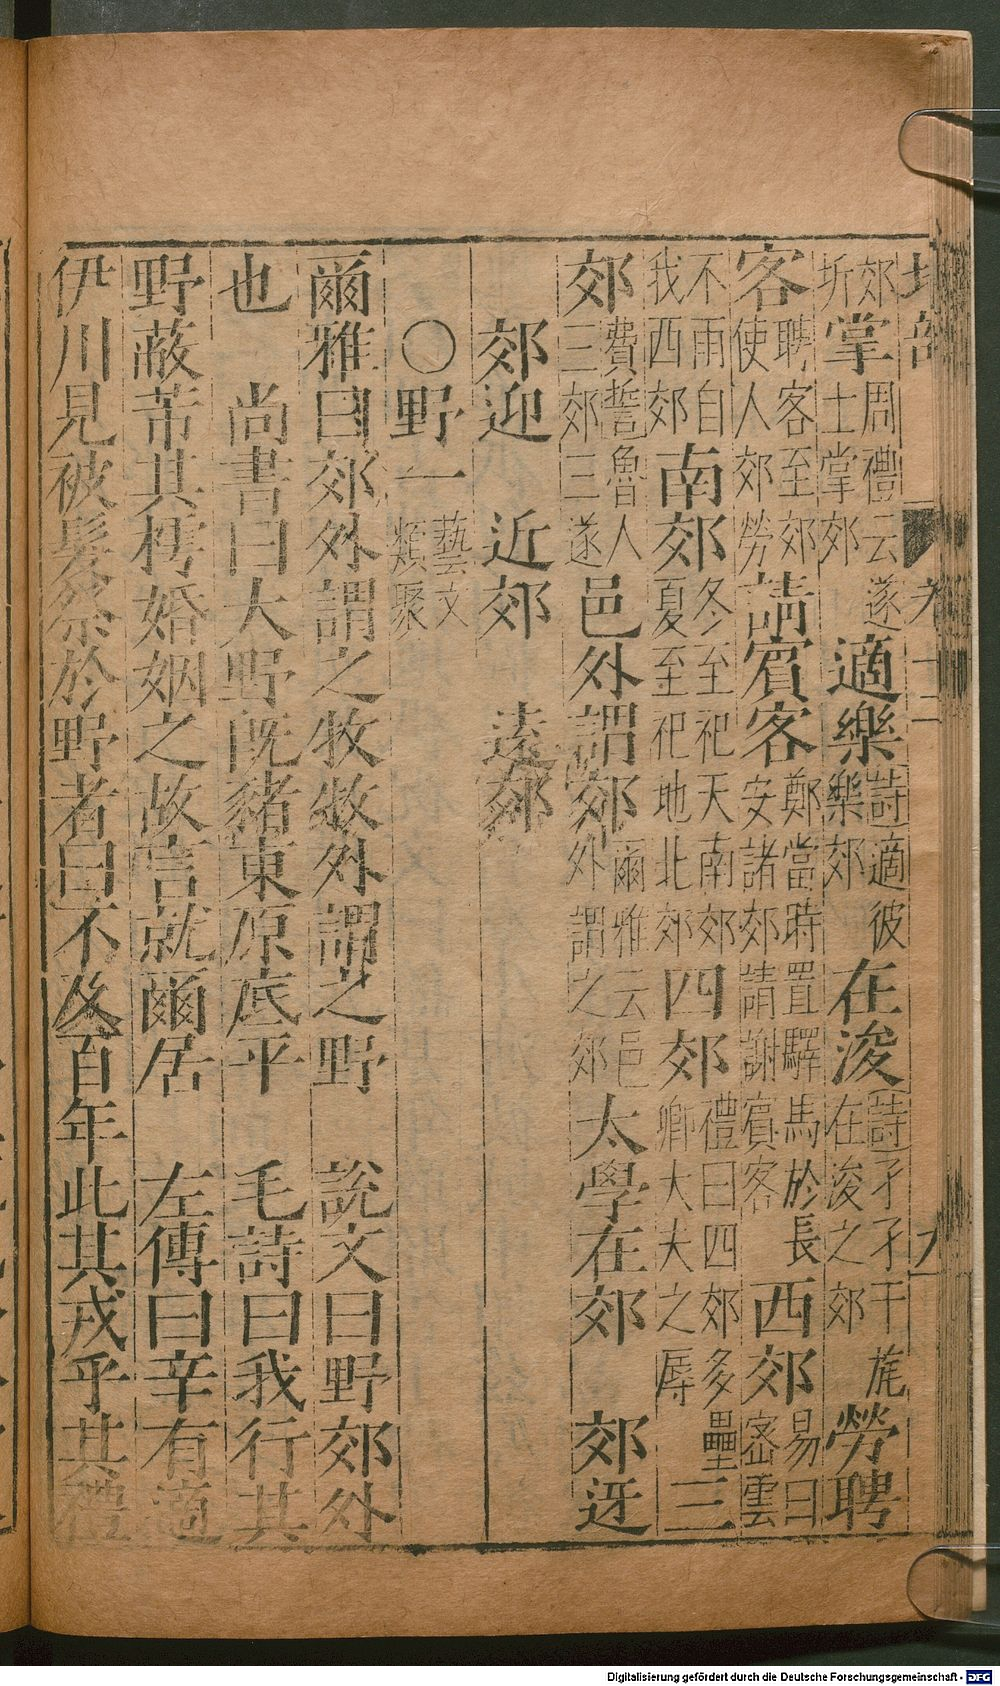 郊圻掌周禮云遂士掌郊適樂詩適彼樂郊在浚詩孑孑干旄在浚之郊勞聘
客聘客至郊使人郊勞請賓客鄭當時置驛馬於長安諸郊請謝賓客西郊易曰密雲
不雨自我西郊南郊冬至祀天南郊夏至祀地北郊四郊禮曰四郊多壘卿大夫之辱三
郊費誓魯人三郊三遂邑外謂郊爾雅云邑外謂之郊太學在郊 郊迓
郊迎 近郊 遠郊
〇野一藝文類聚
爾雅曰郊外謂之牧牧外謂之野 說文曰野郊外
也 尚書曰大野旣豬東原底平 毛詩曰我行其
野蔽芾其樗婚姻之故言就爾居 左傳曰辛有適
伊川見被髮祭於野者曰不及百年此其戎乎其禮
Digitalisierung gefördert durch die Deutsche Forschungsgemeinschaft - DFG